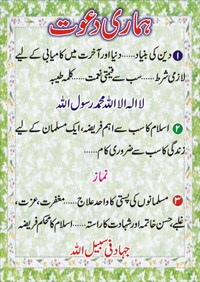 ہماری دعوت
۱ دین کی بنیاد......دنیا اور آخرت میں کامیابی کے لیے
لازمی شرط......سب سے قیمتی نعمت......کلمہ طیبہ
لا الہ الا اللہ محمد رسول اللہ
۲ اسلام کا سب سے اہم فریضہ، ایک مسلمان کے لیے
زندگی کا سب سے ضروری کام......
نماز
۳ مسلمانوں کی پستی کا واحد علاج......مغفرت، عزت،
غلبے، حسن خاتمہ اور شہادت کا راستہ......اسلام کا محکم فریضہ
جہاد فی سبیل اللہ